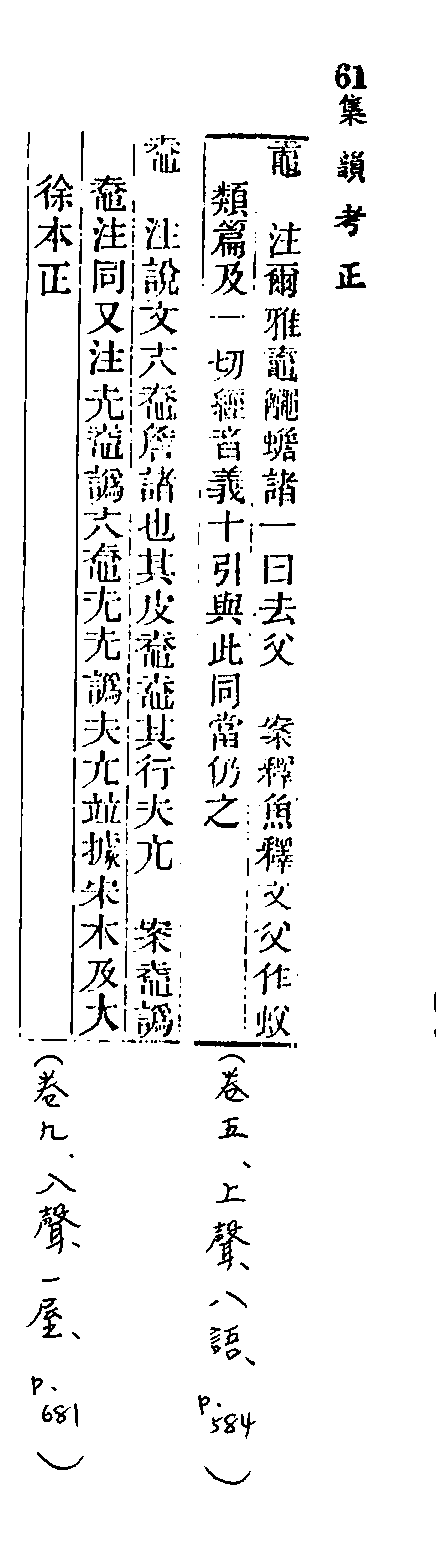 61集韻考正
鼁 注爾雅鼁𪓰蟾諸一曰去父 案釋魚釋文父作蚥
類篇及一切經音義十引與此同當仍之
(卷五、上聲、八語、p.584)
𪓰 注說文六𪓰詹諸也其皮𪓰𪓰其行夫亢 案𪓰譌
鼀注同又注圥鼀譌六𪓰圥圥譌夫亢竝據宋本及大
徐本正
(卷九、入聲、一屋、p.681)